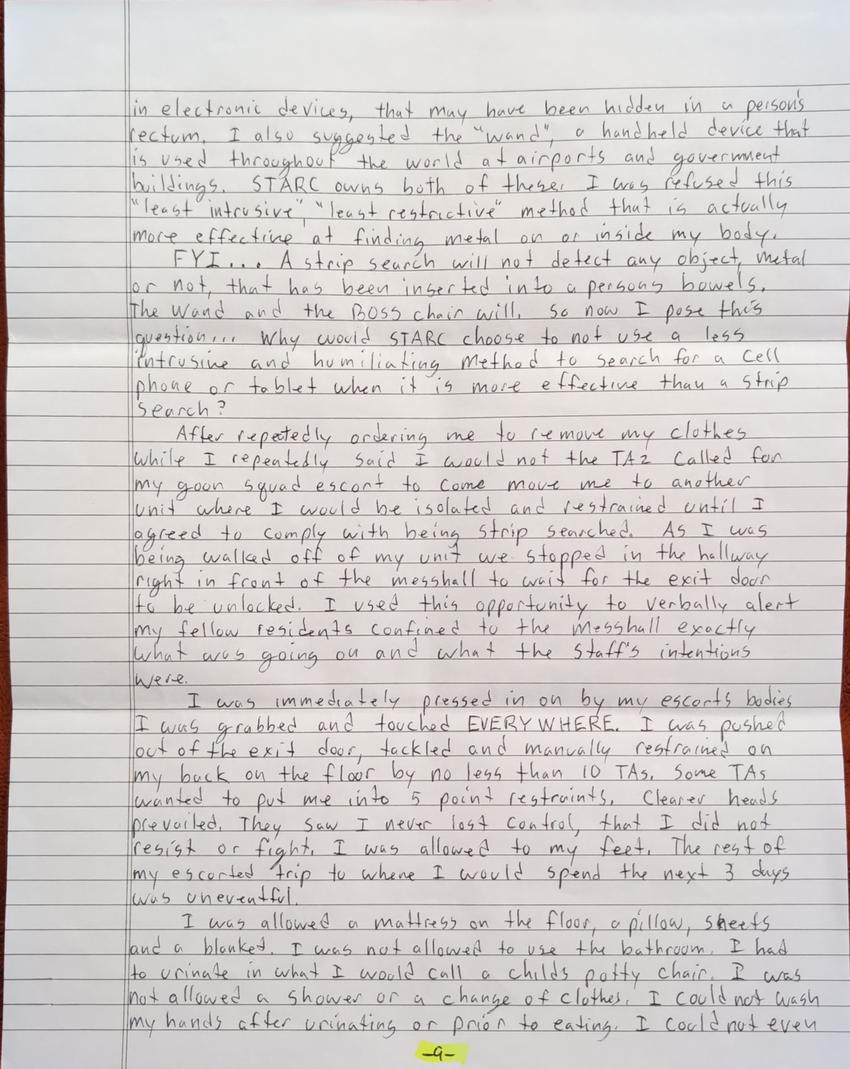 in electronic devices, that may have been hidden in a person's
rectum. I also suggested the "wand", a handheld device that
is used throughout the world at airports and government
buildings. STARC owns both of these. I was refused this
"least intrusive", "least restrictive" method that is actually
more effective at finding metal on or inside my body.
FYI... A strip search will not detect any object, metal
or not, that has been inserted into a persons bowels.
The Wand and the BOSS chair will. So now I pose this
question... Why would STARC choose to not use a less
intrusive and humiliating method to search for a cell
phone or tablet when it is more effective than a strip
search?
After repetedly ordering me to remove my clothes
while I repeatedly said I would not the TA2 called for
my goon squad escort to come move me to another
unit where I would be isolated and restrained until I
agreed to comply with being strip searched. As I was
being walked off of my unit we stopped in the hallway
right in front of the messhall to wait for the exit door
to be unlocked. I used this opportunity to verbally alert
my fellow residents confined to the messhall exactly
what was going on and what the staff's intentions
were.
I was immediately pressed in on by my escorts bodies
I was grabbed and touched EVERYWHERE. I was pushed
out of the exit door, tackled and manually restrained on
my back on the floor by no less than 10 TAs. Some TAs
wanted to put me into 5 point restraints. Clearer heads
prevailed. They saw I never lost control, that I did not
resist or fight. I was allowed to my feet. The rest of
my escorted trip to where I would spend the next 3 days
was uneventful.
I was allowed a mattress on the floor, a pillow, sheets
and a blanket. I was not allowed to use the bathroom. I had
to urinate in what I would call a childs potty chair. I was
not allowed a shower or a change of clothes. I could not wash
my hands after urinating or prior to eating. I could not even
-9-